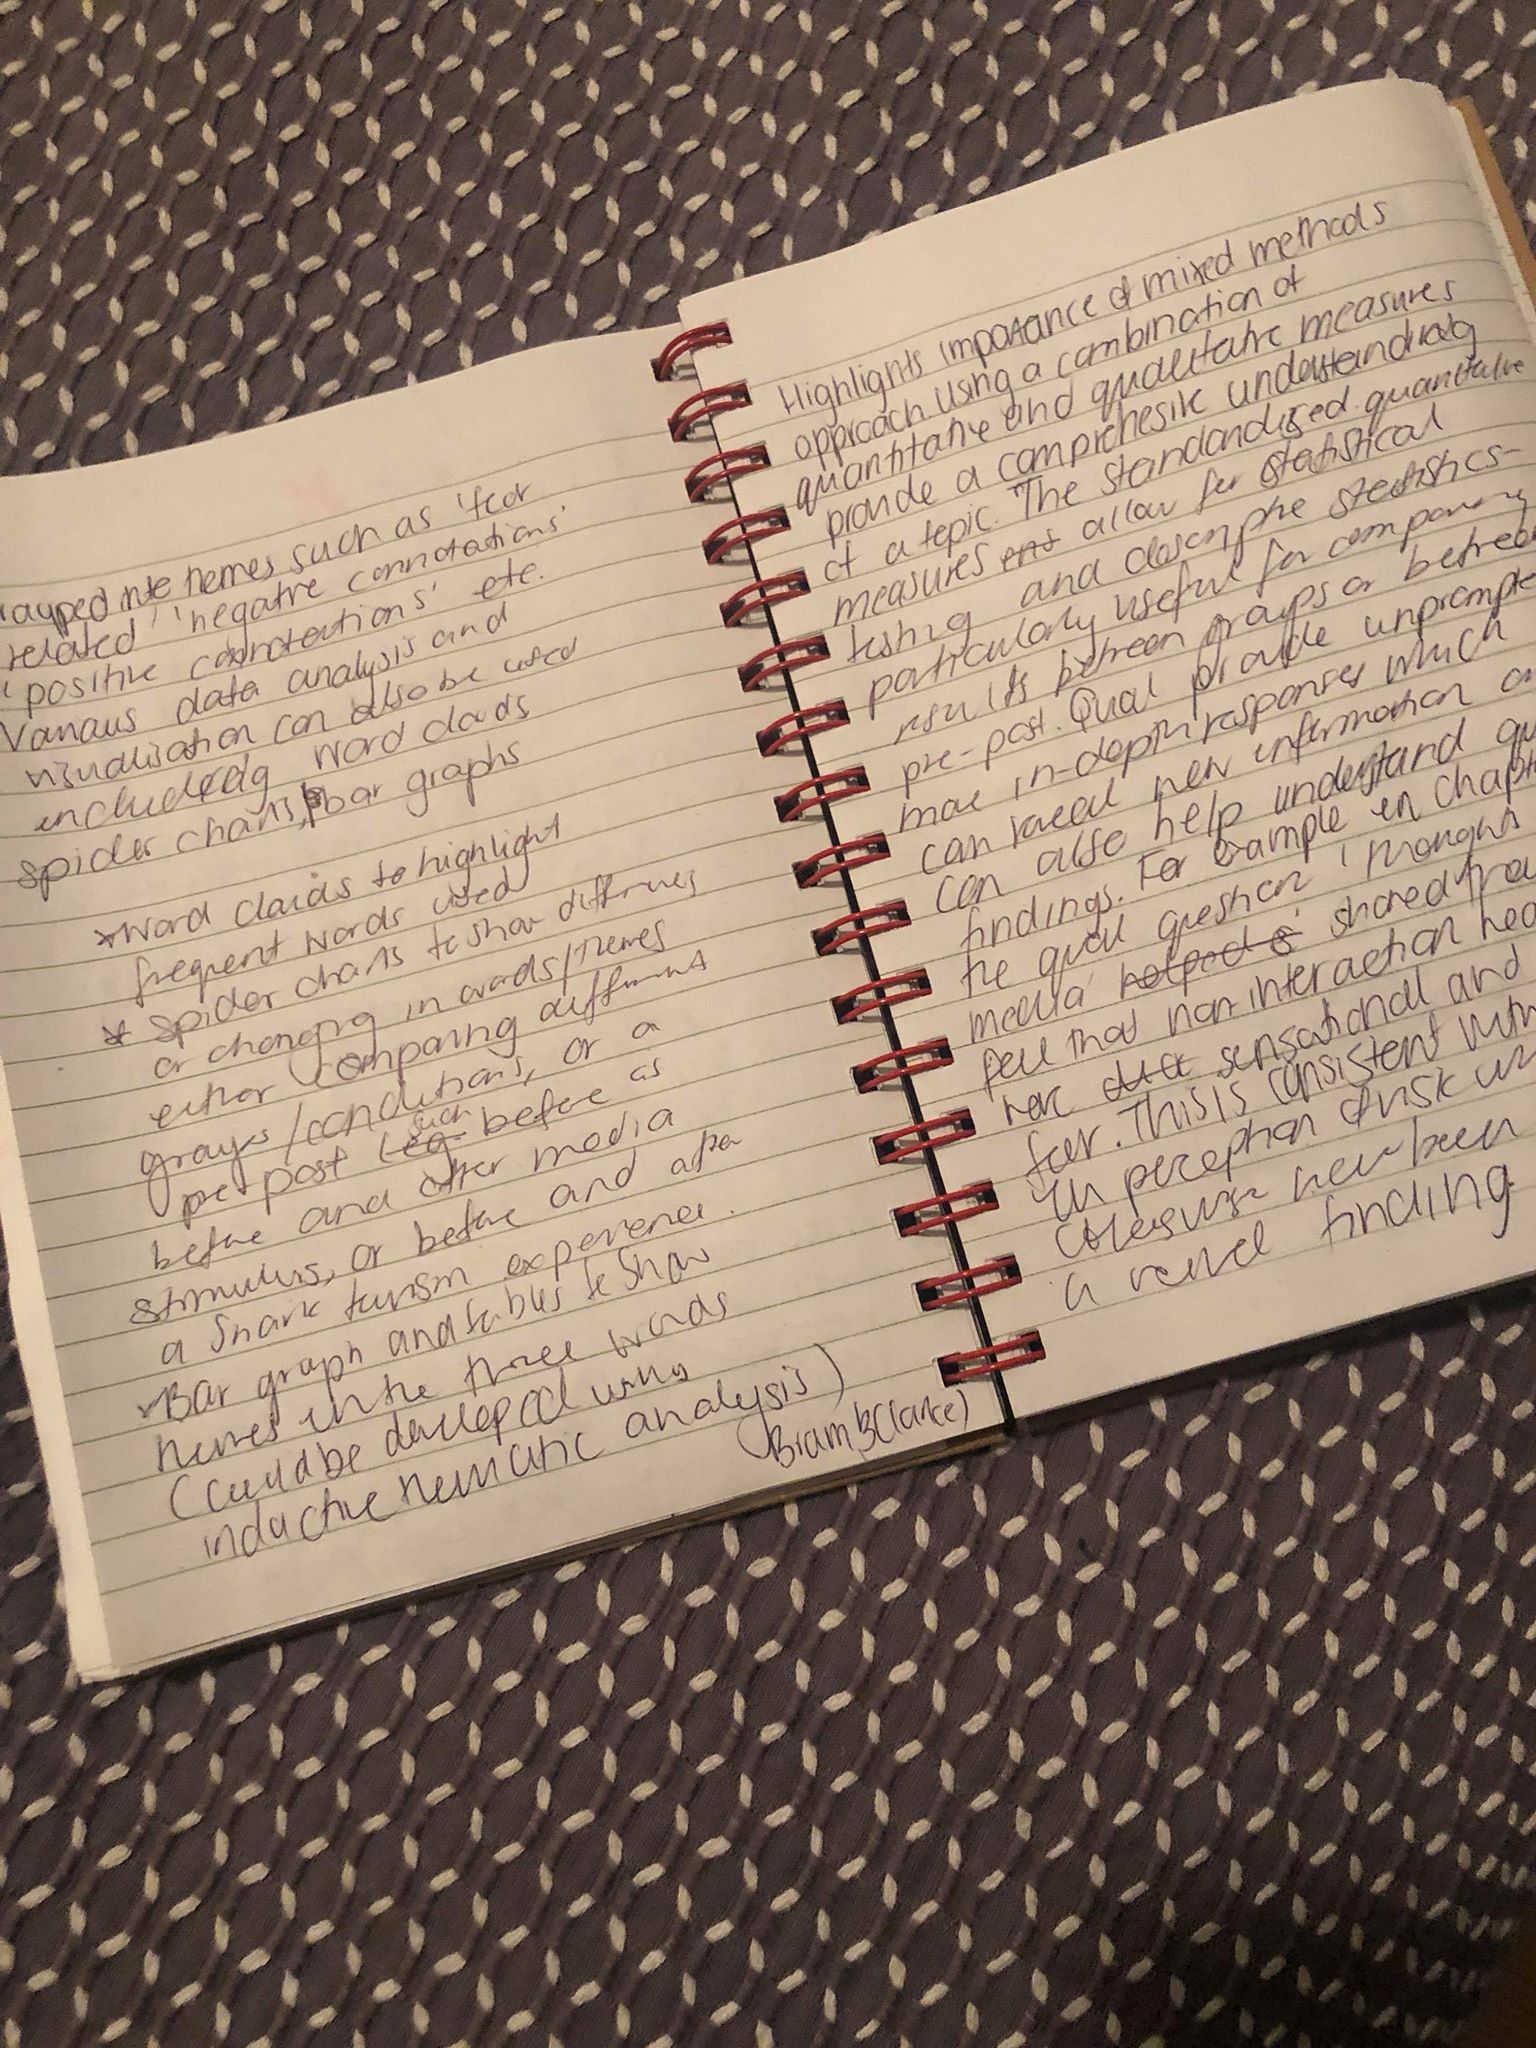 into themes such as 'fear
related' 'negative connotations'
'positive connotations' etc.
Various data analysis and
visualisation can also be used
including word clouds
spider charts, bar graphs
*Word clouds to highlight
frequent words used
* Spider charts to show differences
or changing in words/themes
either comparing different
groups/conditions, or a
pre-post such before as
before and after media
stimulus, or before and after
a shark tourism experience.
Bar graph and tables to show
themes in the three words
(could be developed using
inductive thematic analysis)
(Braun & Clarke)
Highlights importance of mixed methods
approach using a combination of
quantitative and qualitative measures
provide a comprehesive understanding
of a topic. The standardized quantitative
measures allow for statistical
testing and descriptive statistics-
particularly useful for comparing
results between groups or between
pre-post. Qual provide unprompte
more in-depth responses which
can reveal new information
can also help understand
findings. For example in Chapt
the qual question 'thoughts
media' helped shared
feel that non-interaction
were sensational and
fear. This is consistent with
in perception of risk
never been
a novel finding.